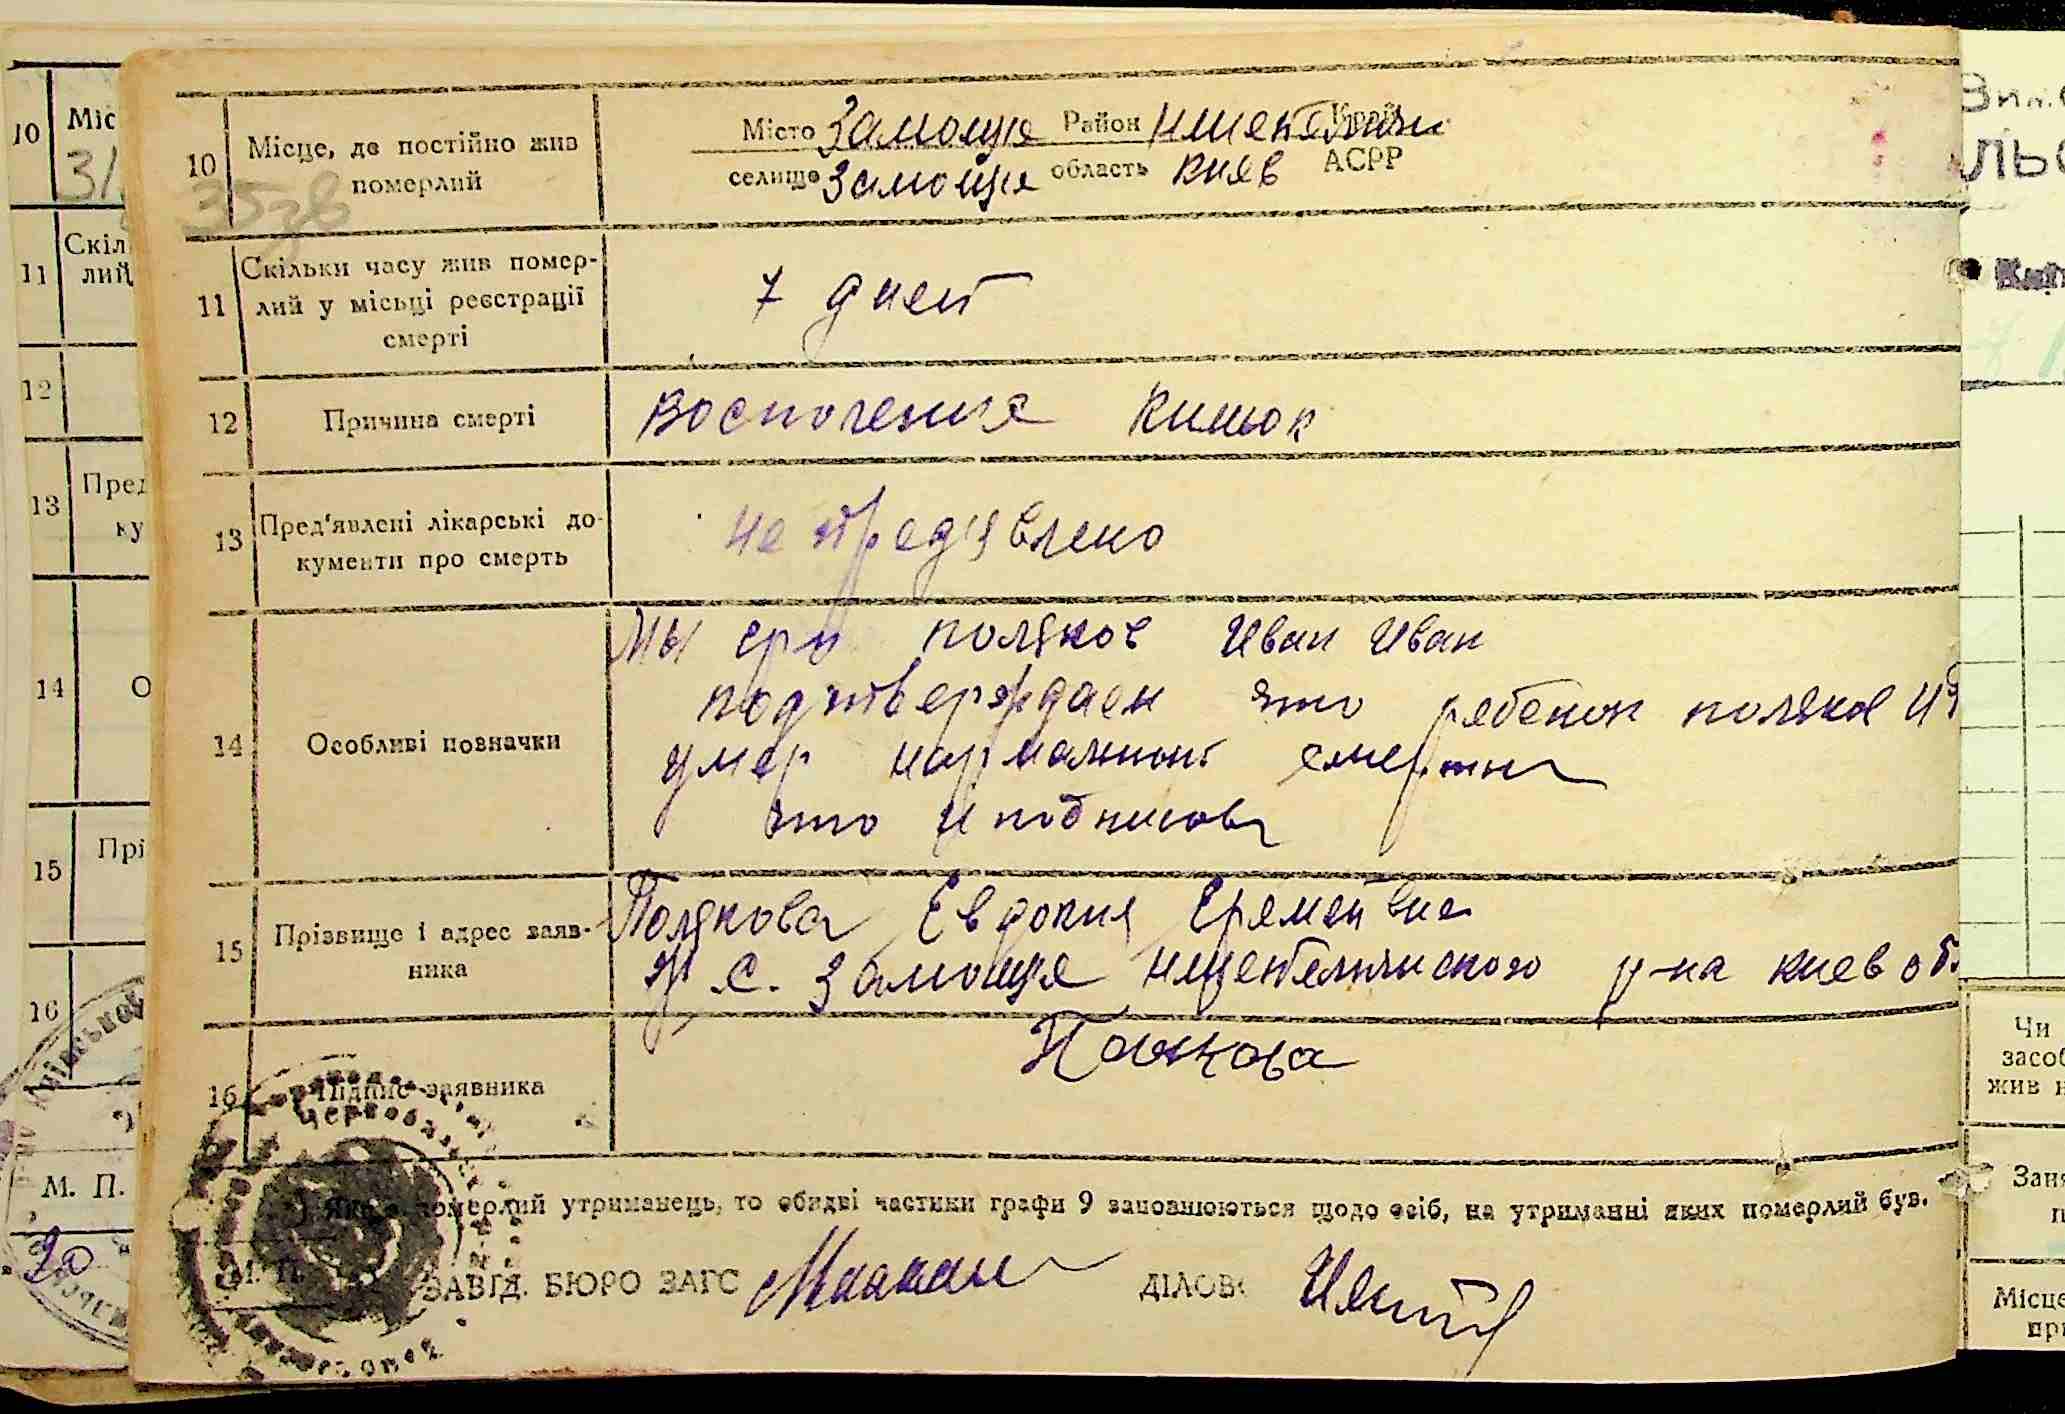 10 Міс
31
11 Скіл
лий
12
13 Пред
ку
14 О
15 Прі
16
М. П.
20
10 Місце, де постійно жив
померлий
35 зв
Місто Замоще Район
селище Замоще область Киев АСРР
11 Скільки часу жив помер-
лий у місьці реєстрації
смерті
7 дней
12 Причина смерті
Воспочения Кишок
13 Пред'явлені лікарські до-
кументи про смерть
не предявлено
14 Особливі позначки
Мы поляков Иван Иван
подтверждаем што ребенок поляков
умер нармальной смерти
што и подписов
15 Прізвище і адрес заяв-
ника
Полякова Евдокия Еремейвна
с. Замоще р-на киев об.
16 Підпис заявника
Якщо померлий утриманець, то обидві частини графи 9 заповнюються щодо осіб, на утриманні яких померлий був.
М. П.
ЗАВІД. БЮРО ЗАГС
ДІЛОВ
Чи
засоб
жив н
Заня
п
Місце
при